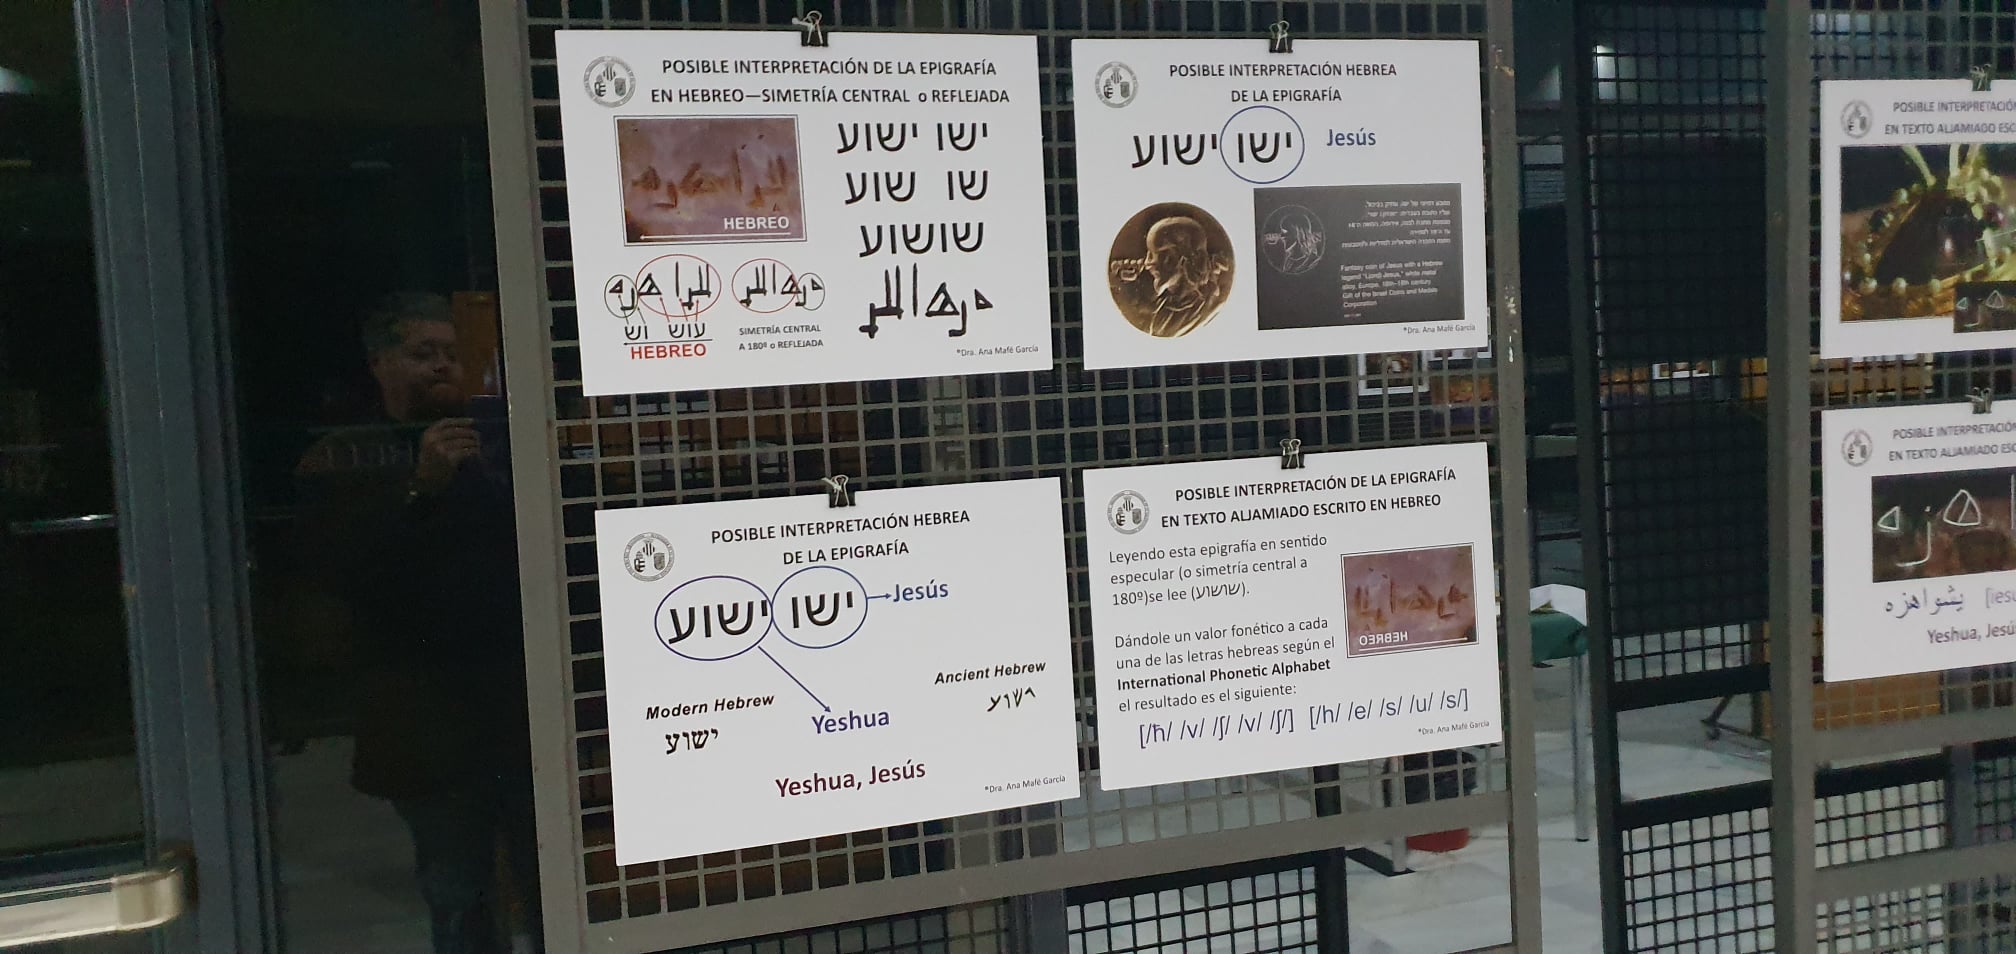 POSIBLE INTERPRETACIÓN DE LA EPIGRAFÍA
EN HEBREO—SIMETRÍA CENTRAL o REFLEJADA
ישו ישוע
שו שוע
שושוע
HEBREO
עוש וש
HEBREO
SIMETRÍA CENTRAL
A 180º o REFLEJADA
*Dra. Ana Mafé García
POSIBLE INTERPRETACIÓN HEBREA
DE LA EPIGRAFÍA
ישו ישוע
Jesús
Fantasy coin of Jesus with a Hebrew
legend "(Lord) Jesus," white metal
alloy, Europe, 16th–18th century
Gift of the Israel Coins and Medals
Corporation
*Dra. Ana Mafé García
POSIBLE INTERPRETACIÓN HEBREA
DE LA EPIGRAFÍA
ישו ישוע
Jesús
Modern Hebrew
ישוע
Yeshua
Ancient Hebrew
ישוע
Yeshua, Jesús
*Dra. Ana Mafé García
POSIBLE INTERPRETACIÓN DE LA EPIGRAFÍA
EN TEXTO ALJAMIADO ESCRITO EN HEBREO
Leyendo esta epigrafía en sentido
especular (o simetría central a
180º)se lee (שושוע).
Dándole un valor fonético a cada
una de las letras hebreas según el
International Phonetic Alphabet
el resultado es el siguiente:
HEBREO
[/ħ/ /v/ /ʃ/ /v/ /ʃ/] [/h/ /e/ /s/ /u/ /s/]
*Dra. Ana Mafé García
POSIBLE INTERPRETACIÓ
EN TEXTO ALJAMIADO ESC
POSIBLE INTERPRETACIÓN
EN TEXTO ALJAMIADO ESC
يشواهزه [ies
Yeshua, Jesú